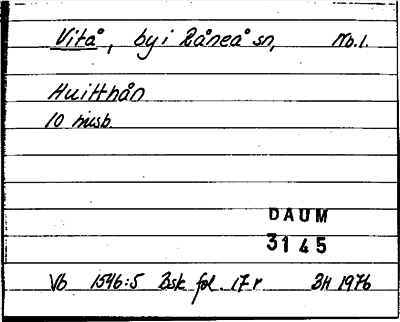 Vitå, by i Råneå sn, No. 1.
Huitthån
10 misb.
DAUM
3145
Vb 1546:5 Bsk fol. 17 r BH 1976